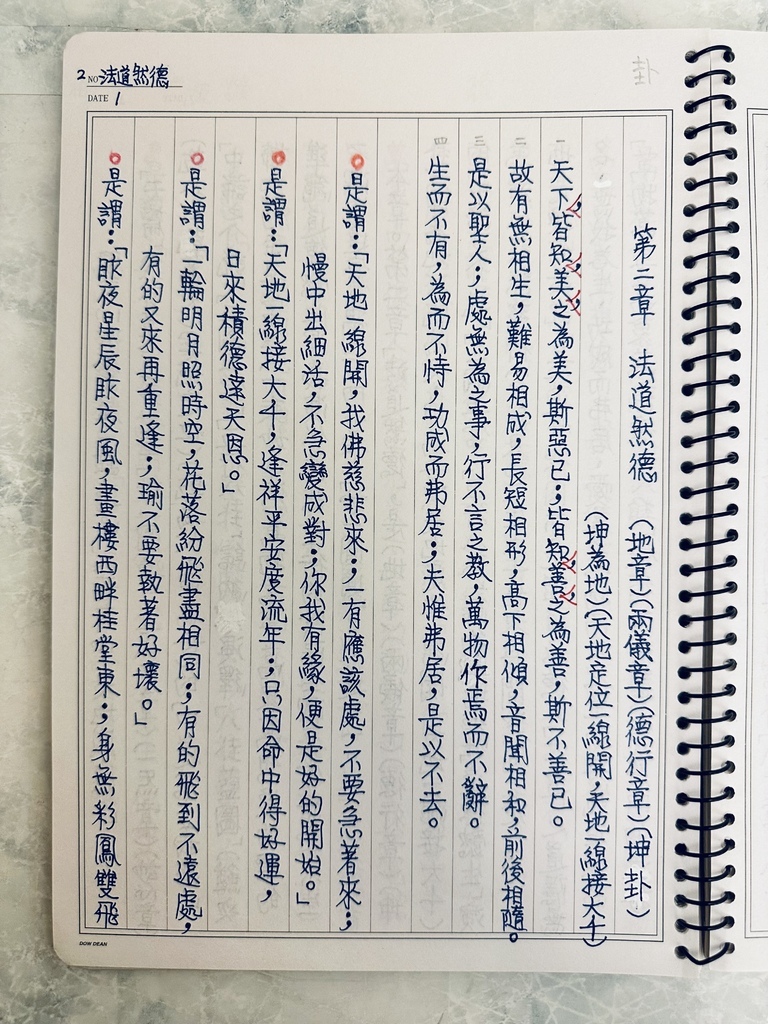 2 NO 法道然德
DATE 1
第二章　法道然德　(地章)(兩儀章)(德行章)(坤卦)
(坤為地)(天地定位一線開,天地一線接大千)
一 天下皆知美之為美,斯惡已;皆知善之為善,斯不善已。
二 故有無相生,難易相成,長短相形,高下相傾,音聞相和,前後相隨。
三 是以聖人;處無為之事,行不言之教,萬物作焉而不辭。
四 生而不有,為而不恃,功成而弗居;夫惟弗居,是以不去。
是謂:「天地一線開,我佛慈悲來;一有應該處,不要急著來;
慢中出細活,不急變成對;你我有緣,便是好的開始。」
是謂:「天地一線接大千,逢祥平安度流年;只因命中得好運,
日來積德達天恩。」
是謂:「一輪明月照時空,花落紛飛盡相同;有的飛到不遠處,
有的又來再重逢;瑜不要執著好壞。」
是謂:「昨夜星辰昨夜風,畫樓西畔桂堂東;身無彩鳳雙飛
DOW DEAN